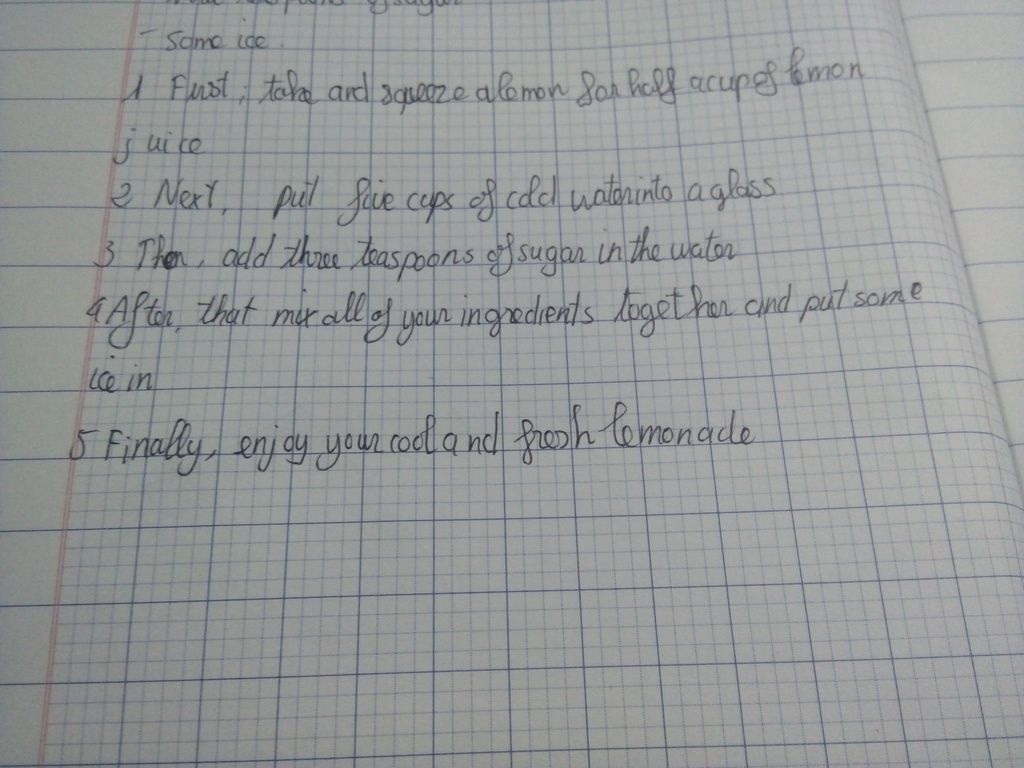 teaspoons of sugar
- Some ice.
1 First, take and squeeze a lemon for half a cup of lemon
juice
2 Next, put five cups of cold water into a glass
3 Then, add three teaspoons of sugar in the water
4 After, that mix all of your ingredients together and put some
ice in
5 Finally, enjoy your cool and fresh lemonade